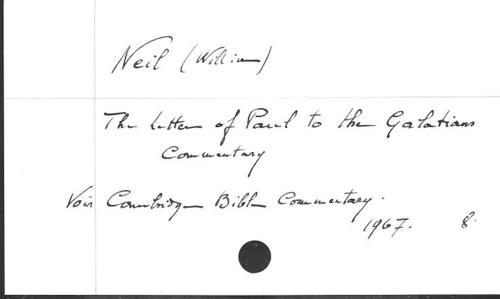 Neil (William)
The Letter of Paul to the Galatians
Commentary
Voir Cambridge Bible Commentary.
1967. 8.